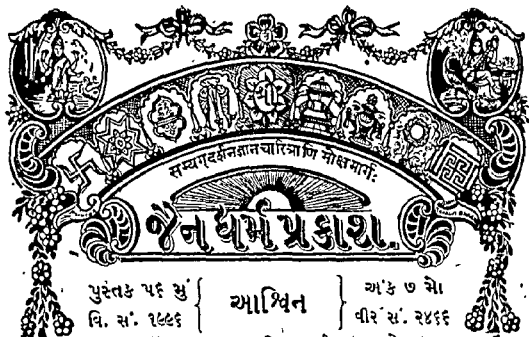 सम्यग्दर्शनज्ञानचारित्राणि मोक्षमार्गः
જૈન ધર્મ પ્રકાશ.
પુસ્તક ૫૬ મું
વિ. સં. ૧૯૯૬
આશ્વિન
અંક ૭ મો
વીર સં. ૨૪૬૬